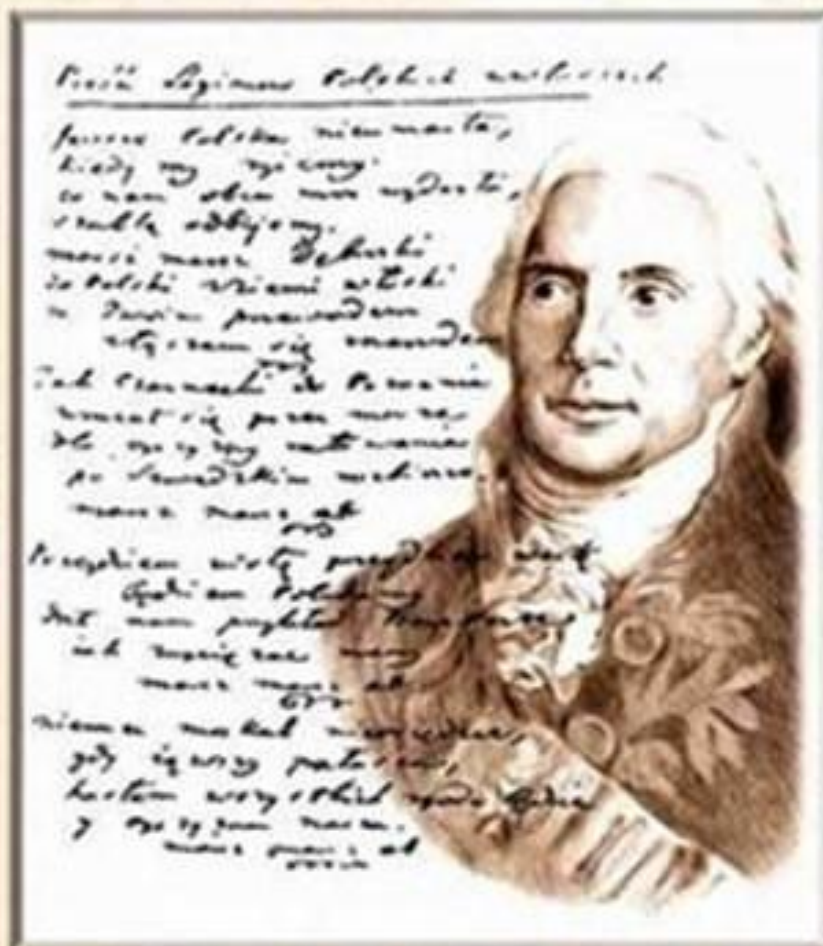 Pieśń Legionów Polskich we Włoszech
Jeszcze Polska nie umarła,
kiedy my żyjemy.
co nam obca moc wydarła,
szablą odbijemy.
marsz marsz Dąbrowski
do Polski z ziemi włoski
za Twoim przewodem
złączem się z narodem
Jak Czarnecki do Poznania
wracał się przez morze
dla ojczyzny ratowania
po Szwedzkim rozbiorze.
marsz marsz
Przejdziem Wisłę przejdziem Wartę
będziem Polakami
dał nam przykład Bonaparte
jak zwyciężać mamy
marsz marsz
niemiec moskal nie osiędzie,
gdy jąwszy pałasza,
hasłem wszystkich zgoda będzie
y ojczyzna nasza.
marsz marsz